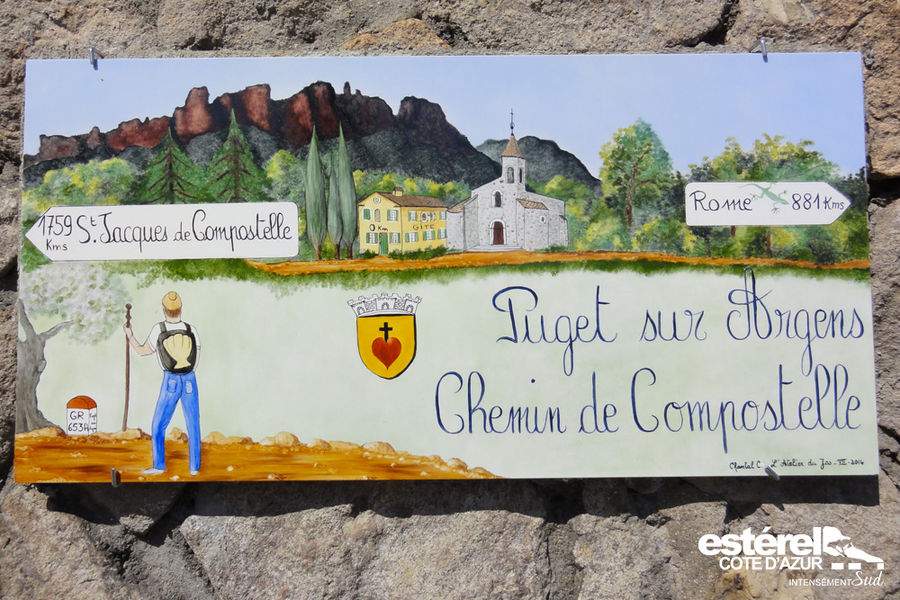 1759 Kms St. Jacques de Compostelle
Rome 881 Kms
0 Km GITE
GR
653A
Puget sur Argens
Chemin de Compostelle
Chantal C. L'Atelier du Jas - VII - 2014
estérel
COTE D'AZUR
INTENSÉMENT Sud